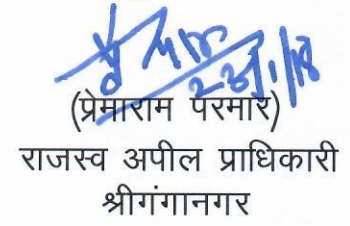 23/1/18
(प्रेमाराम परमार)
राजस्व अपील प्राधिकारी
श्रीगंगानगर